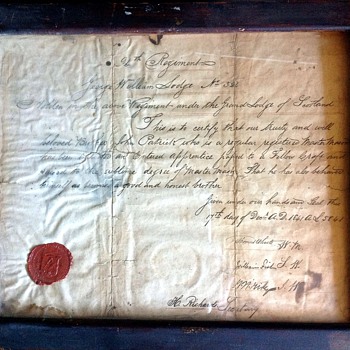 94th Regiment
George William Lodge No 321
holden in the above Regiment under the Grand Lodge of Scotland
This is to certify that our trusty and well
beloved Brother John Patrick who is a regular registered Master Mason
has been an Entered apprentice passed to a Fellow Craft and
raised to the sublime degree of Master Mason, That he has also behaved
himself as becomes a good and honest brother
Given under our hands and Seal this
17th day of A.D. 1841 A.L. 5841
W. M.
William S. W.
J. W.
H. Richards Secretary